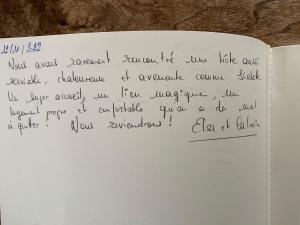 12/11/2022
Nous avons rarement rencontré une hôte aussi
sociable, chaleureuse et avenante comme
Un super accueil, un lieu magique, un
logement propre et confortable qu'on a du mal
à quitter ! Nous reviendrons !
Elsa et